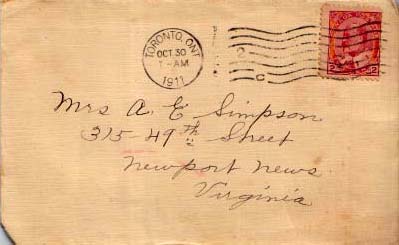 TORONTO, ONT
OCT 30
7-AM
1911
C
2 2
Mrs A. E Simpson
315 49th Street
Newport News.
Virginia